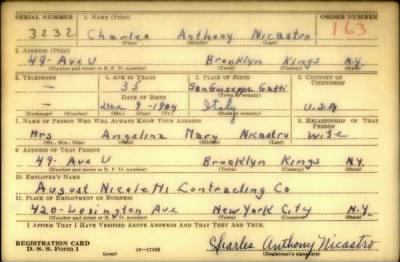 SERIAL NUMBER 1. NAME (Print) ORDER NUMBER
3232 Charles Anthony Nicastro 163
(First) (Middle) (Last)
2. ADDRESS (Print)
49- Ave U Brooklyn Kings N.Y.
(Number and street or R. F. D. number) (Town) (County) (State)
3. TELEPHONE 4. AGE IN YEARS 5. PLACE OF BIRTH 6. COUNTRY OF CITIZENSHIP
— 35 San Guiseppe Gatti
DATE OF BIRTH (Town or county)
— Dec 9 - 1904 Italy U.S.A
(Exchange) (Number) (Mo.) (Day) (Yr.) (State or country)
7. NAME OF PERSON WHO WILL ALWAYS KNOW YOUR ADDRESS 8. RELATIONSHIP OF THAT PERSON
Mrs Angelina Mary Nicastro Wife
(Mr., Mrs., Miss) (First) (Middle) (Last)
9. ADDRESS OF THAT PERSON
49- Ave U Brooklyn Kings N.Y.
(Number and street or R. F. D. number) (Town) (County) (State)
10. EMPLOYER'S NAME
August Contracting Co.
11. PLACE OF EMPLOYMENT OR BUSINESS
420- Lexington Ave New York City N.Y.
(Number and street or R. F. D. number) (Town) (County) (State)
I AFFIRM THAT I HAVE VERIFIED ABOVE ANSWERS AND THAT THEY ARE TRUE.
REGISTRATION CARD
D. S. S. Form 1 (over) Charles Anthony Nicastro
(Registrant's signature)